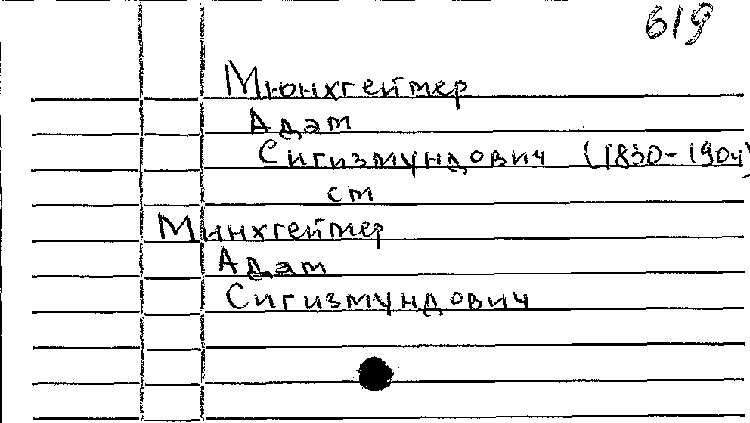 619
Мюнхгеймер
Адам
Сигизмундович (1830-1904)
см
Минхгеймер
Адам
Сигизмундович